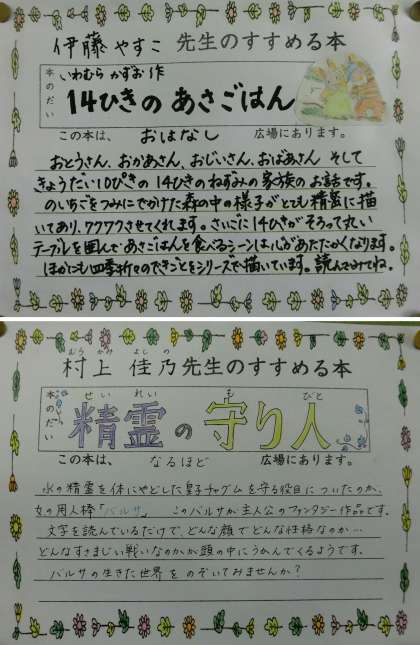 伊藤 やすこ 先生のすすめる本
本のだい
いわむら かずお 作
14ひきの あさごはん
この本は、 おはなし 広場にあります。
おとうさん、おかあさん、おじいさん、おばあさん そして
きょうだい10ぴきの 14ひきのねずみの家族のお話です。
のいちごをつみにでかけた森の中の様子がとても精霊に描
いてあり、ワクワクさせてくれます。さいごに14ひきがそろって丸い
テーブルを囲んであさごはんを食べるシーンは心があたたかくなります。
ほかにも四季折々のできごとをシリーズで描いています。読んでみてね。
むら かみ よし の
村上 佳乃 先生のすすめる本
本のだい
せい れい も びと
精霊の守り人
この本は、 なるほど 広場にあります。
水の精霊を体にやどした皇子チャグムを守る役目についたのが、
女の用人棒「バルサ」 このバルサが主人公のファンタジー作品です。
文字を読んでいるだけで、どんな顔でどんな性格なのか…
どんなすさまじい戦いなのかが頭の中にうかんでくるようです。
バルサの生きた世界をのぞいてみませんか？